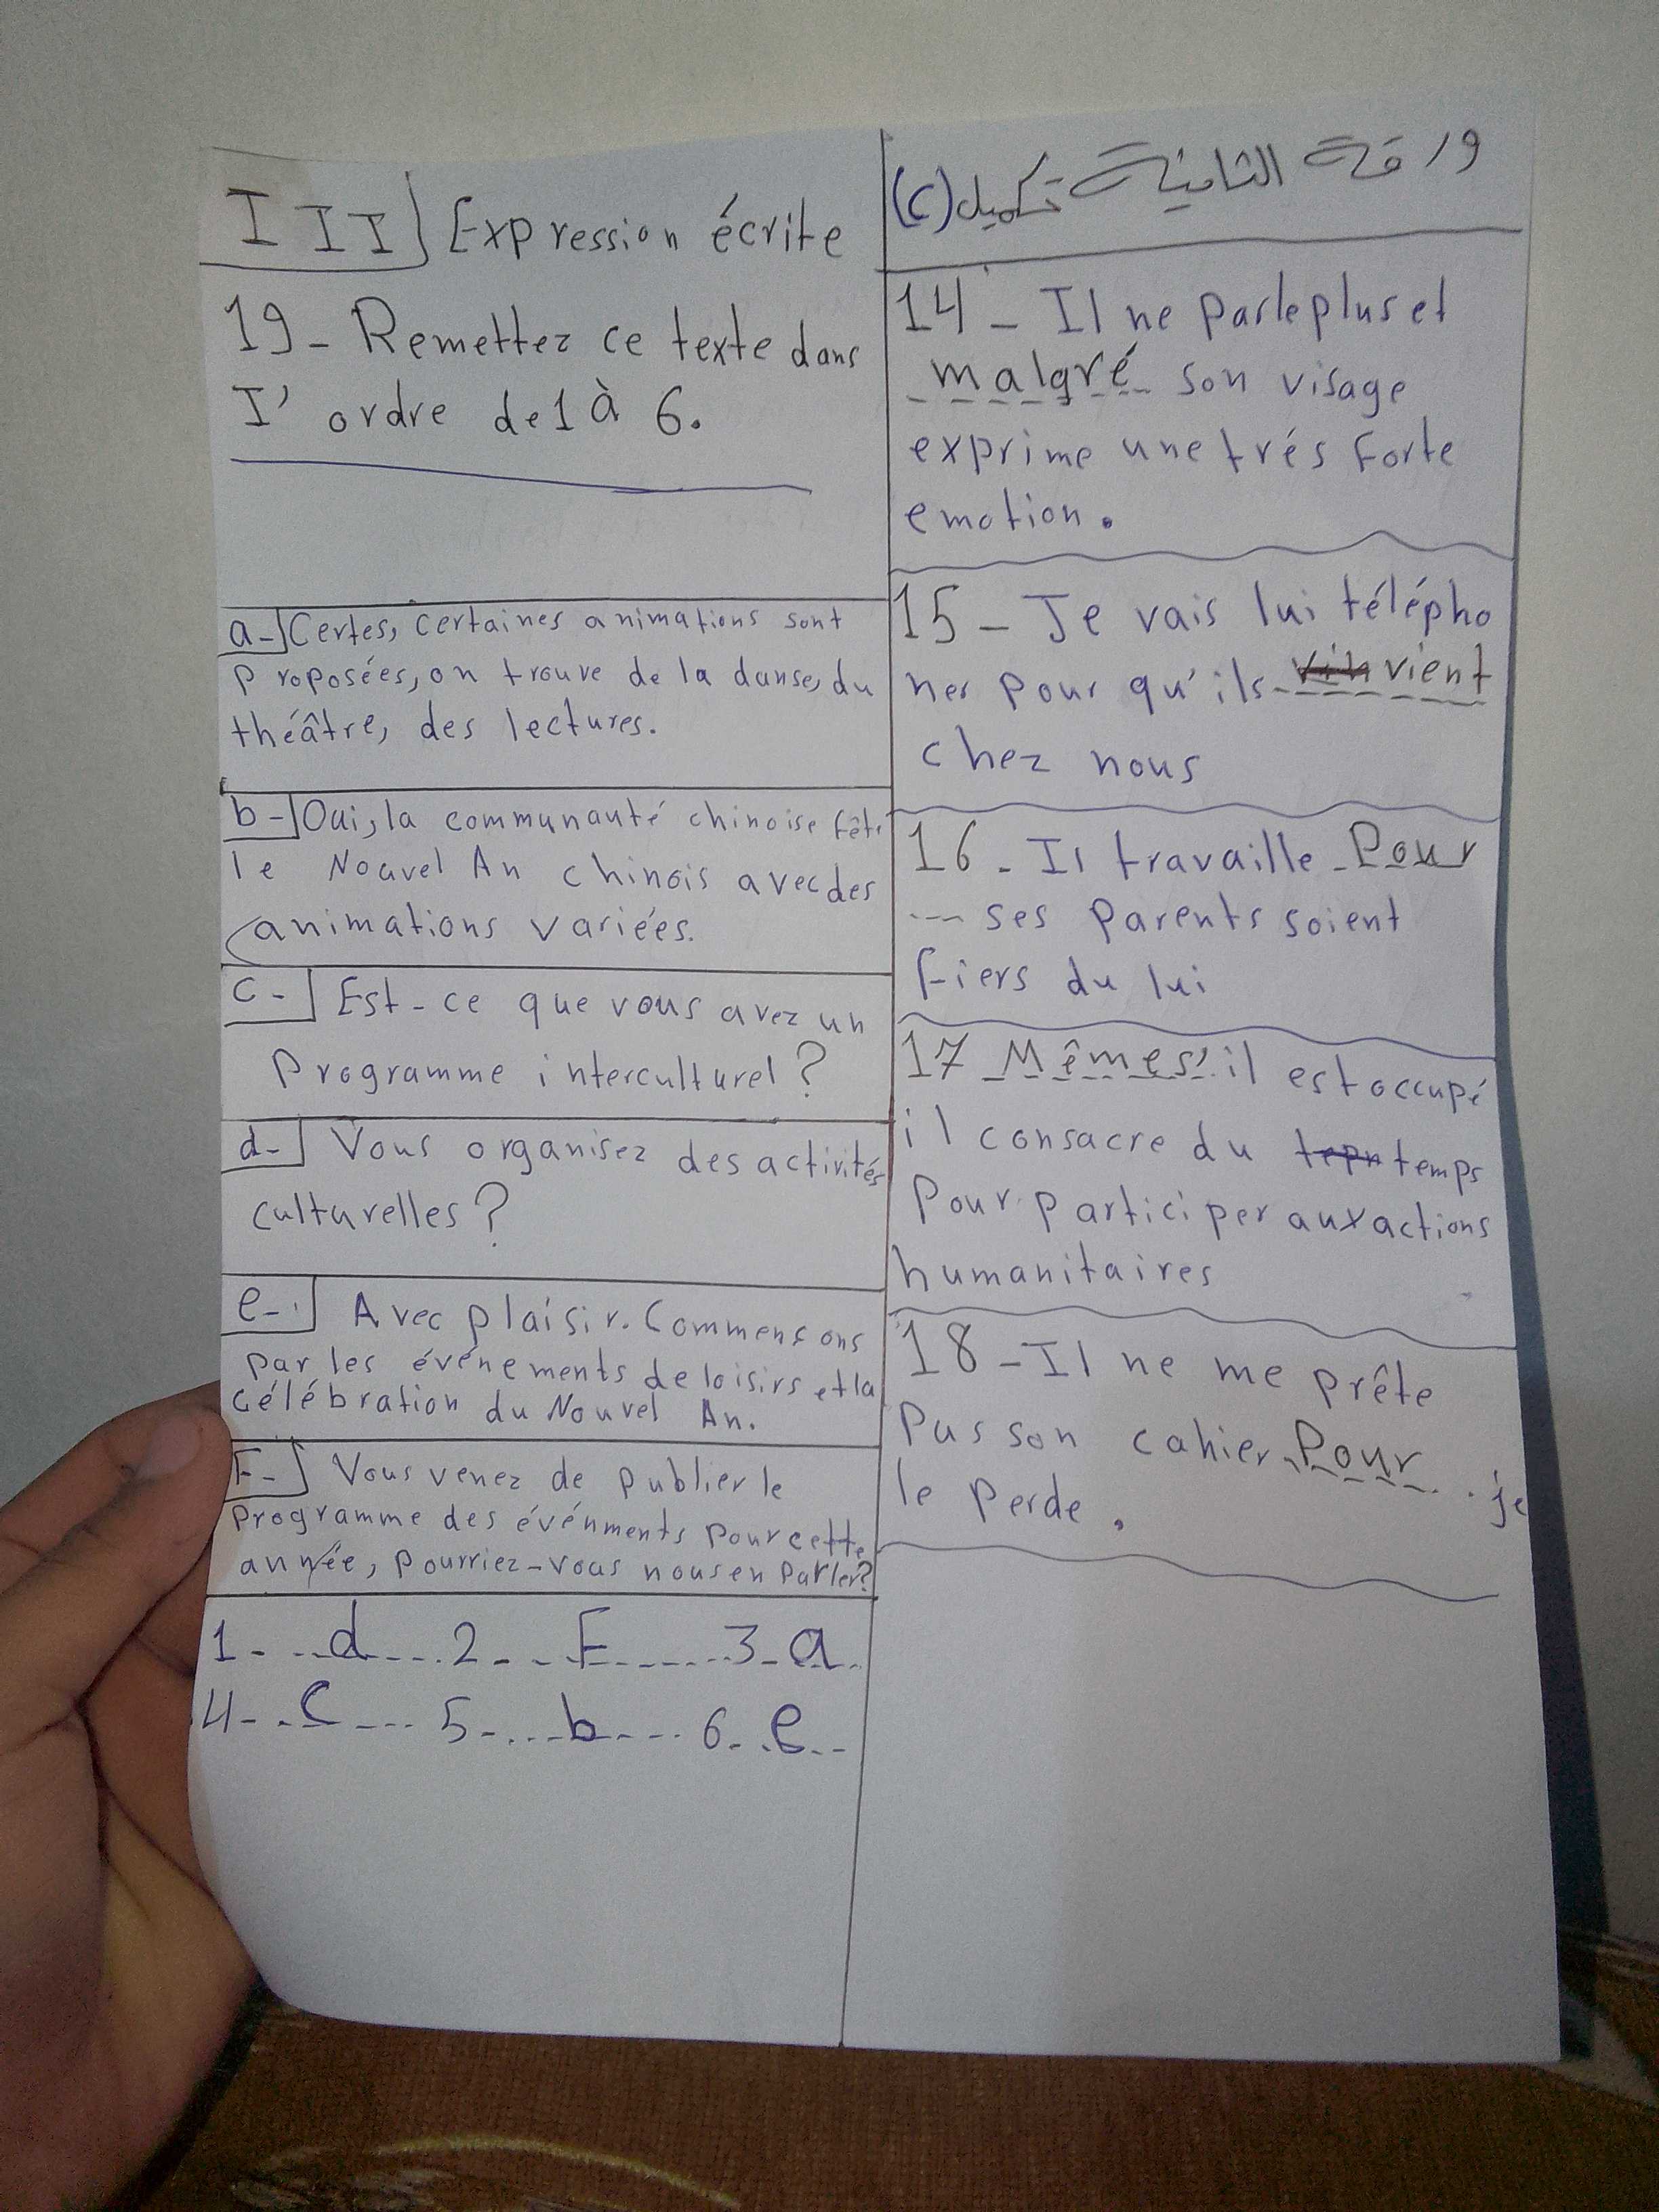 III) Expression écrite
19- Remettez ce texte dans
I' ordre de 1 à 6.
a- Certes, certaines animations sont
proposées, on trouve de la danse, du
théâtre, des lectures.
b- Oui, la communauté chinoise fête
le Nouvel An chinois avec des
animations variées.
c- Est-ce que vous avez un
programme interculturel?
d- Vous organisez des activités
culturelles?
e- Avec plaisir. Commensons
par les événements de loisirs et la
célébration du Nouvel An.
F- Vous venez de publier le
programme des événments pour cette
année, pourriez-vous nous en parler?
1- ...d.... 2- ..F......3-a..
4- ..c.... 5- ....b.... 6- .e..
ورقة الثانية تكميل (c)
14 - Il ne parle plus et
malgré son visage
exprime une trés forte
emotion.
15 - Je vais lui télépho
ner pour qu'ils vient
chez nous
16 - Il travaille Pour
--- ses parents soient
fiers du lui
17 Mêmes' il est occupé
il consacre du temps
pour participer aux actions
humanitaires
18 - Il ne me prête
pas son cahier Pour ... je
le perde.